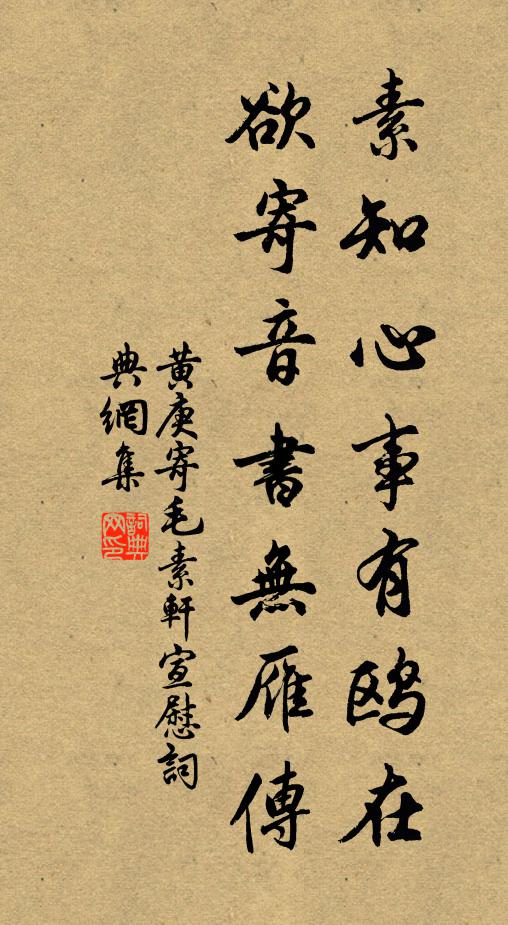 素知心事有鸥在
欲寄音書無雁傳
黄庚寄毛素軒宣慰詞
典網集
詞典網印